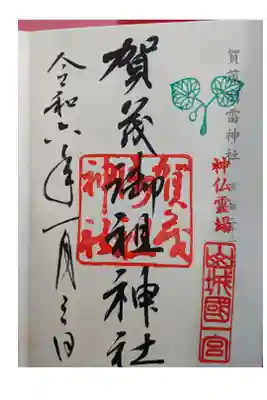 賀茂別雷神社
神仏霊場
山城國一宮
賀茂御祖神社
令和六年一月三日